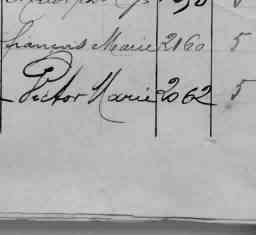 François Marie 2160 5
Victor Marie 2062 5